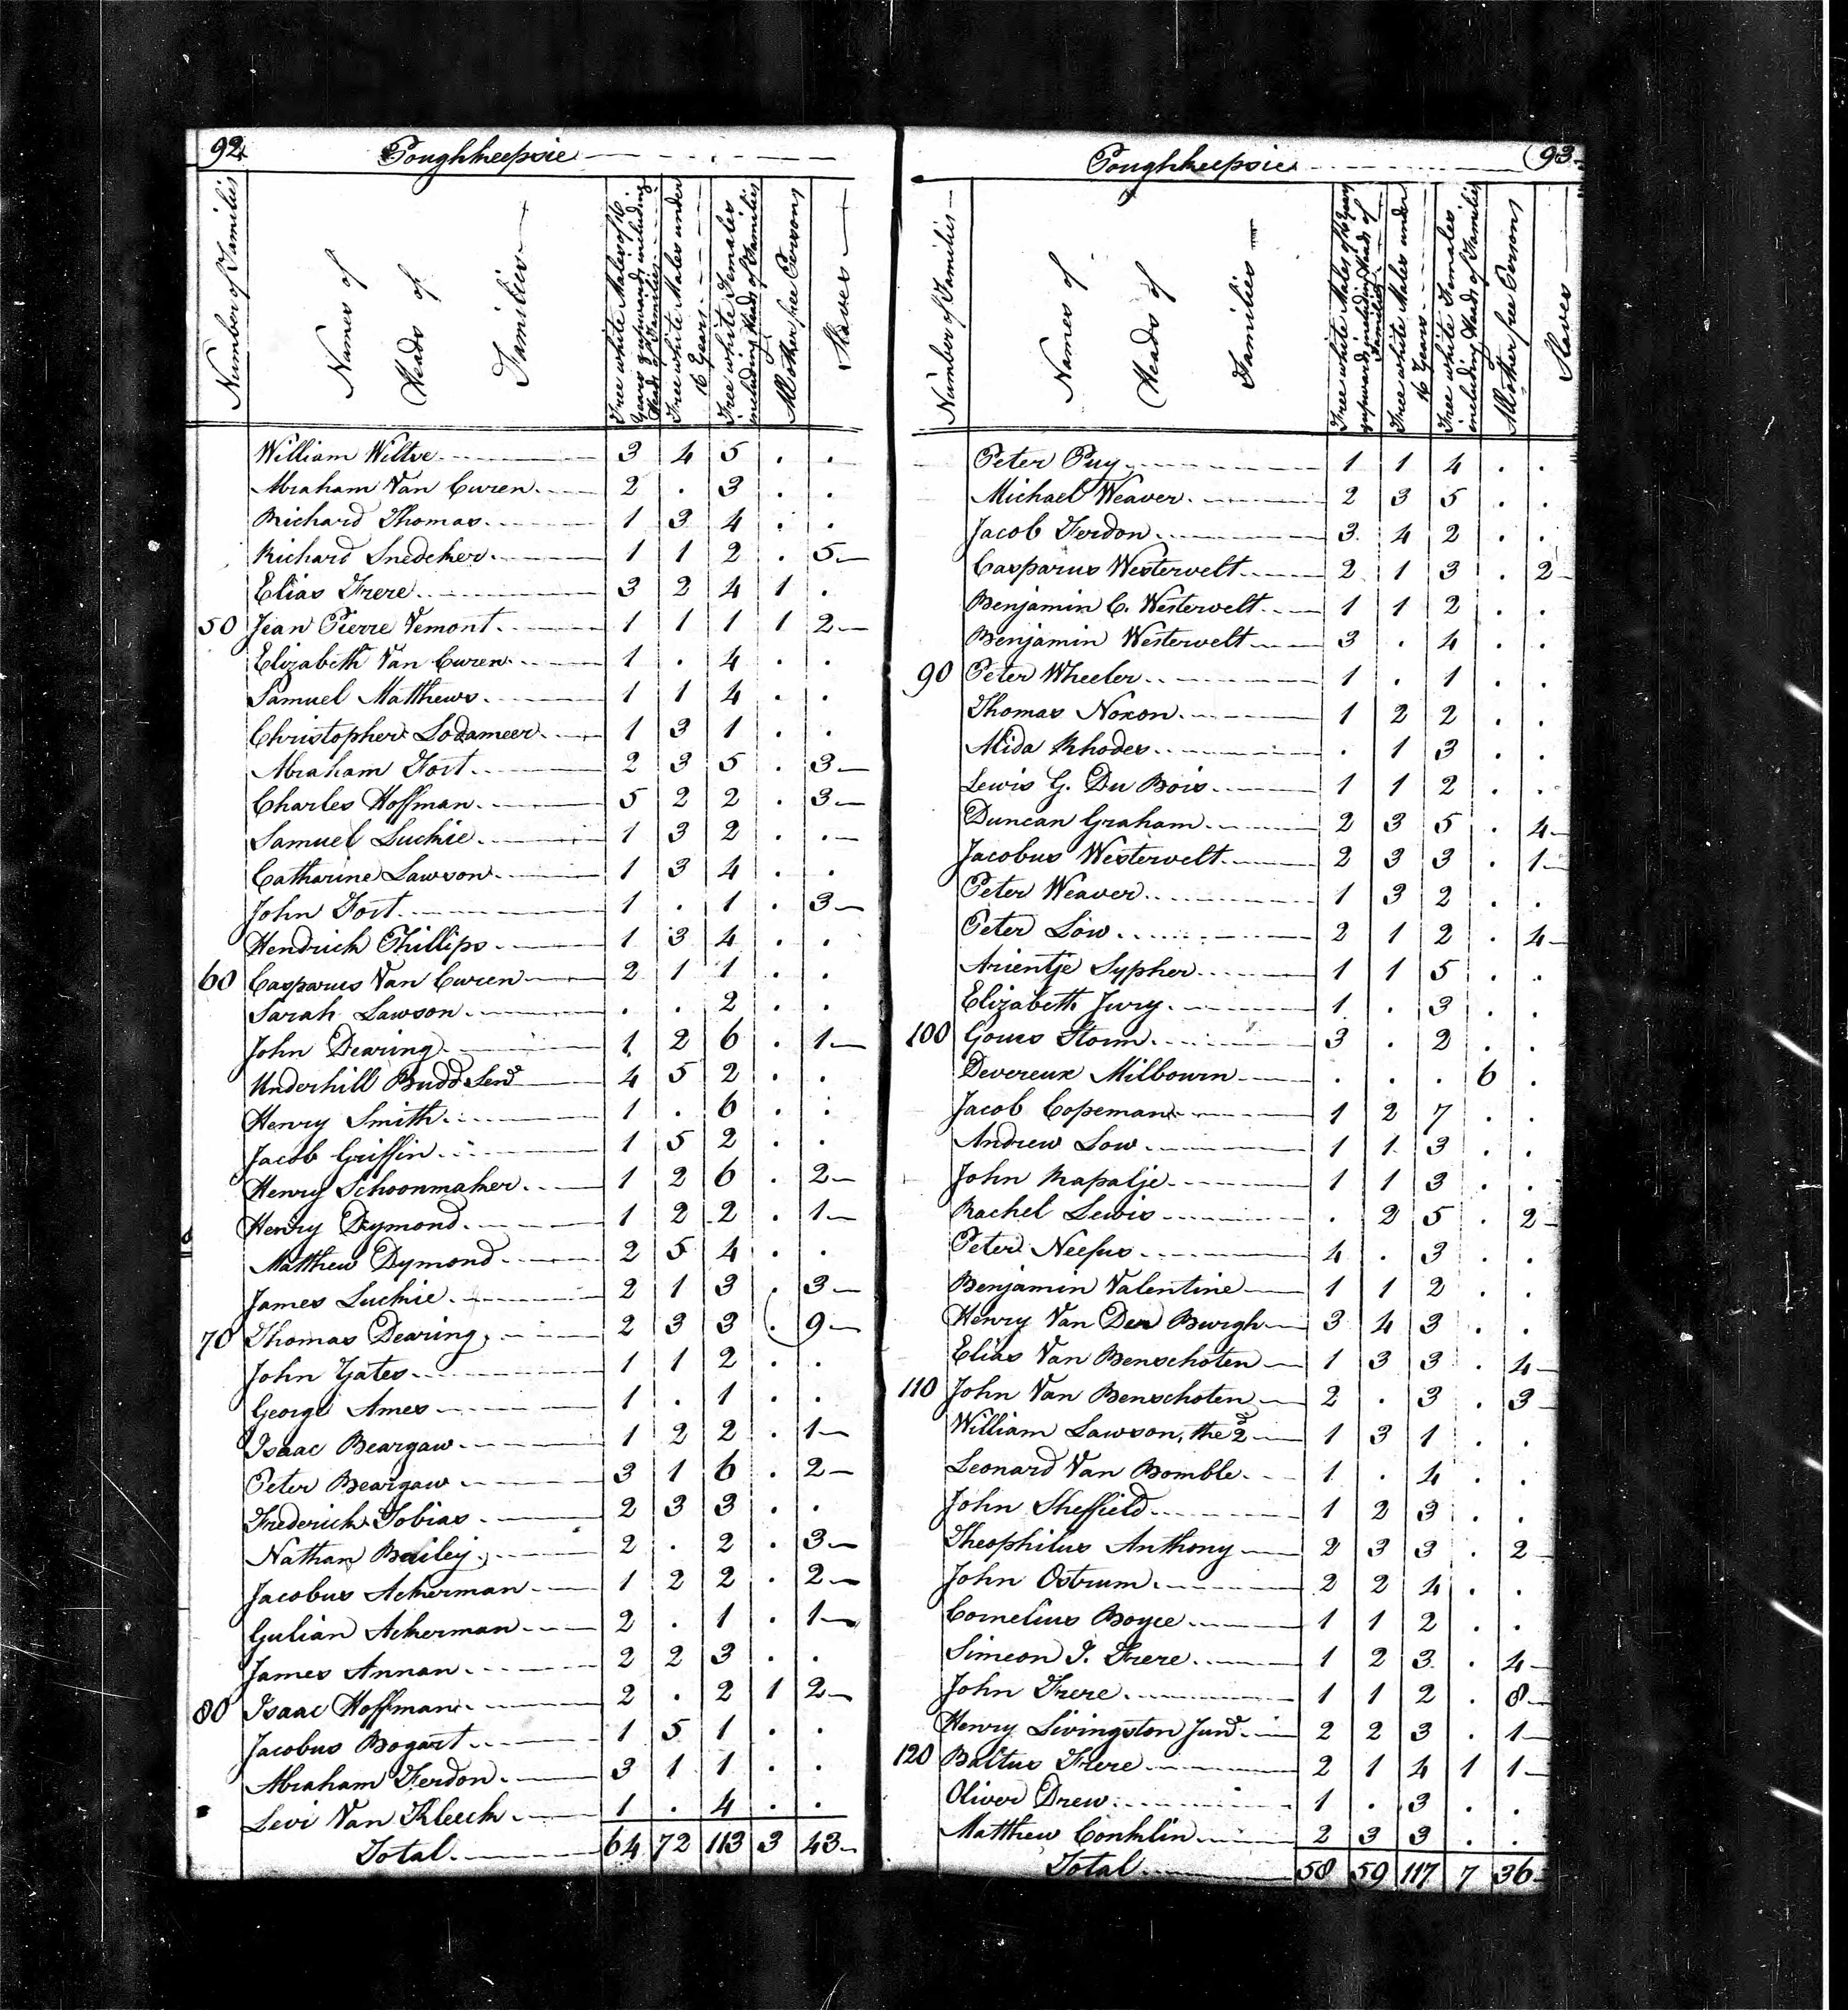 92
Poughkeepsie
Number of Families
Names of
Heads of
Families
Free white Males of 16
Years & upwards including
Heads of Families
Free white Males under
16 Years
Free white Females
including Heads of Families
All other free Persons
Slaves
William Wiltse 3 4 5 . .
Abraham Van Curen 2 . 3 . .
Richard Thomas 1 3 4 . .
Richard Snedeker 1 1 2 . 5
Elias Frere 3 2 4 1 .
50 Jean Pierre Vemont 1 1 1 1 2
Elizabeth Van Curen 1 . 4 . .
Samuel Matthews 1 1 4 . .
Christopher Lodameer 1 3 1 . .
Abraham Fort 2 3 5 . 3
Charles Hoffman 5 2 2 . 3
Samuel Luckie 1 3 2 . .
Catharine Lawson 1 3 4 . .
John Fort 1 . 1 . 3
Hendrick Phillips 1 3 4 . .
60 Casparus Van Curen 2 1 1 . .
Sarah Lawson . . 2 . .
John Dearing 1 2 6 . 1
Underhill Budd Senr 4 5 2 . .
Henry Smith 1 . 6 . .
Jacob Griffin 1 5 2 . .
Henry Schoonmaker 1 2 6 . 2
Henry Dymond 1 2 2 . 1
Matthew Dymond 2 5 4 . .
James Luckie 2 1 3 . 3
70 Thomas Dearing 2 3 3 . 9
John Yates 1 1 2 . .
George Ames 1 . 1 . .
Isaac Beargaw 1 2 2 . 1
Peter Beargaw 3 1 6 . 2
Frederick Tobias 2 3 3 . .
Nathan Bailey 2 . 2 . 3
Jacobus Ackerman 1 2 2 . 2
Gulian Ackerman 2 . 1 . 1
James Annan 2 2 3 . .
80 Isaac Hoffman 2 . 2 1 2
Jacobus Bogart 1 5 1 . .
Abraham Ferdon 3 1 1 . .
Levi Van Kleeck 1 . 4 . .
Total 64 72 113 3 43
93
Poughkeepsie
Number of Families
Names of
Heads of
Families
Free white Males of 16 Years
& upwards including Heads of
Families
Free white Males under
16 Years
Free white Females
including Heads of Families
All other free Persons
Slaves
Peter Puy 1 1 4 . .
Michael Weaver 2 3 5 . .
Jacob Ferdon 3 4 2 . .
Casparus Westervelt 2 1 3 . 2
Benjamin C. Westervelt 1 1 2 . .
Benjamin Westervelt 3 . 4 . .
90 Peter Wheeler 1 . 1 . .
Thomas Noxon 1 2 2 . .
Alida Rhodes . 1 3 . .
Lewis G. Du Bois 1 1 2 . .
Duncan Graham 2 3 5 . 4
Jacobus Westervelt 2 3 3 . 1
Peter Weaver 1 3 2 . .
Peter Low 2 1 2 . 4
Arientje Sypher 1 1 5 . .
Elizabeth Jury 1 . 3 . .
100 Goues Storm 3 . 2 . .
Devereux Milbourn . . . 6 .
Jacob Copeman 1 2 7 . .
Andrew Low 1 1 3 . .
John Rapalje 1 1 3 . .
Rachel Lewis . 2 5 . 2
Peter Neefus 4 . 3 . .
Benjamin Valentine 1 1 2 . .
Henry Van Der Burgh 3 4 3 . .
Elias Van Benschoten 1 3 3 . 4
110 John Van Benschoten 2 . 3 . 3
William Lawson, the 2d 1 3 1 . .
Leonard Van Bomble 1 . 4 . .
John Sheffield 1 2 3 . .
Theophilus Anthony 2 3 3 . 2
John Ostrum 2 2 4 . .
Cornelius Boyce 1 1 2 . .
Simeon J. Frere 1 2 3 . 4
John Frere 1 1 2 . 8
Henry Livingston Junr 2 2 3 . 1
120 Baltus Frere 2 1 4 1 1
Oliver Drew 1 . 3 . .
Matthew Conklin 2 3 3 . .
Total 58 59 117 7 36